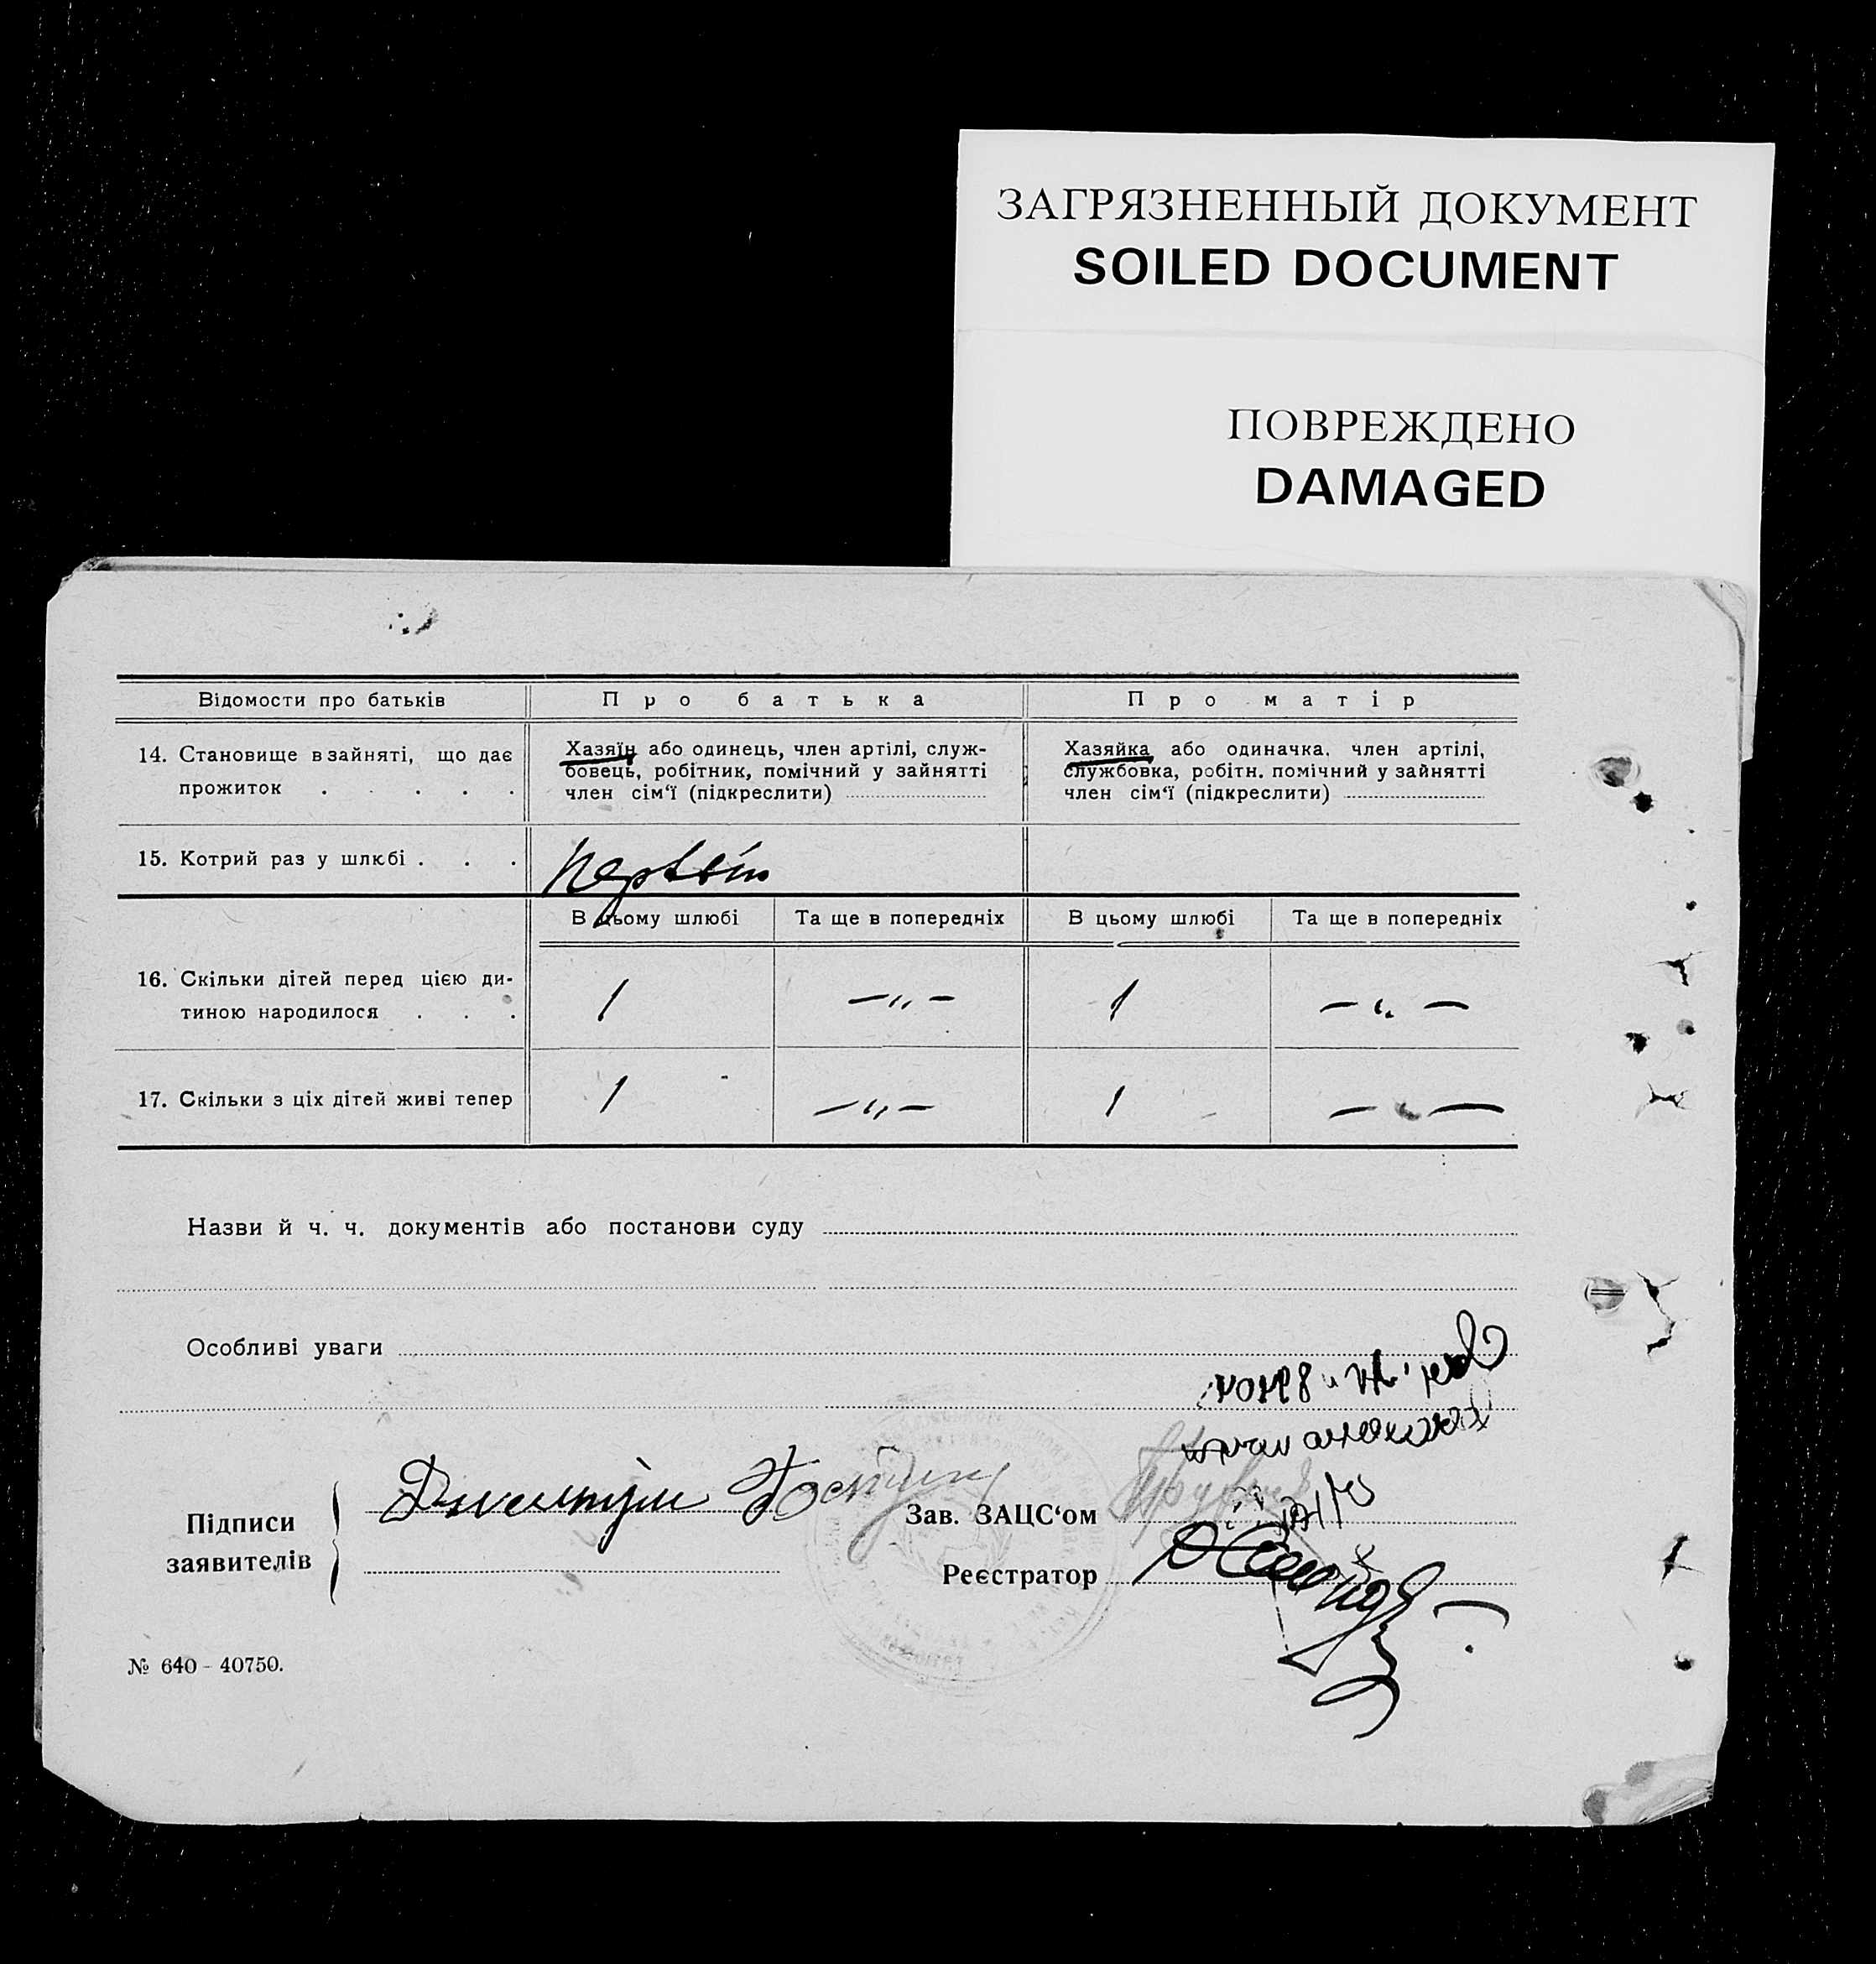 ЗАГРЯЗНЕННЫЙ ДОКУМЕНТ
SOILED DOCUMENT
ПОВРЕЖДЕНО
DAMAGED
Відомости про батьків
Про батька
Про матір
14. Становище в зайняті, що дає
прожиток . . . . .
Хазяїн або одинець, член артілі, служ-
бовець, робітник, помічний у зайнятті
член сім‘ї (підкреслити)
Хазяйка або одиначка, член артілі,
службовка, робітн. помічний у зайнятті
член сім‘ї (підкреслити)
15. Котрий раз у шлюбі . . .
В цьому шлюбі
Та ще в попередніх
В цьому шлюбі
Та ще в попередніх
16. Скільки дітей перед цією ди-
тиною народилося . . .
1
— „ —
1
— „ —
17. Скільки з ціх дітей живі тепер
1
— „ —
1
— „ —
Назви й ч. ч. документів або постанови суду
Особливі уваги
Підписи
заявителів
Зав. ЗАЦС‘ом
Реєстратор
№ 640 - 40750.